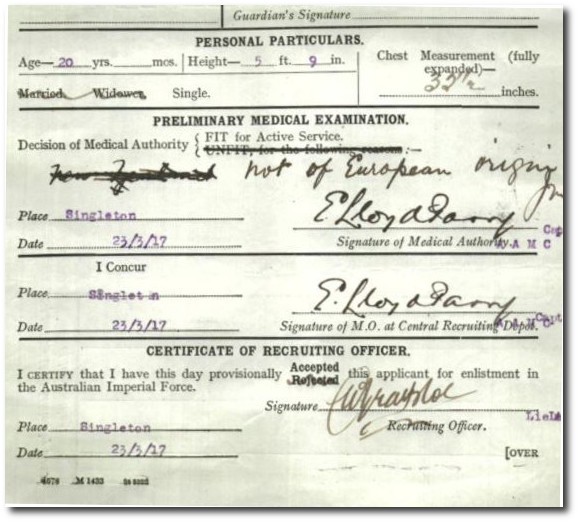 Guardian's Signature
PERSONAL PARTICULARS.
Age— 20 yrs. mos. Height— 5 ft. 9 in.
Chest Measurement (fully expanded)— 32½ inches.
Married, Widower, Single.
PRELIMINARY MEDICAL EXAMINATION.
Decision of Medical Authority { FIT for Active Service.
UNFIT, for the following reasons:—
not of European origin
Place Singleton
E Lloyd Parry
Capt
Date 23/3/17 Signature of Medical Authority. A A M C
I Concur
Place Singleton
E. Lloyd Parry
Capt
Date 23/3/17 Signature of M.O. at Central Recruiting Depot. A A M C
CERTIFICATE OF RECRUITING OFFICER.
I CERTIFY that I have this day provisionally Accepted Rejected this applicant for enlistment in
the Australian Imperial Force.
Signature
Place Singleton Recruiting Officer. Lieut
Date 23/3/17 [OVER
4678 M 1433